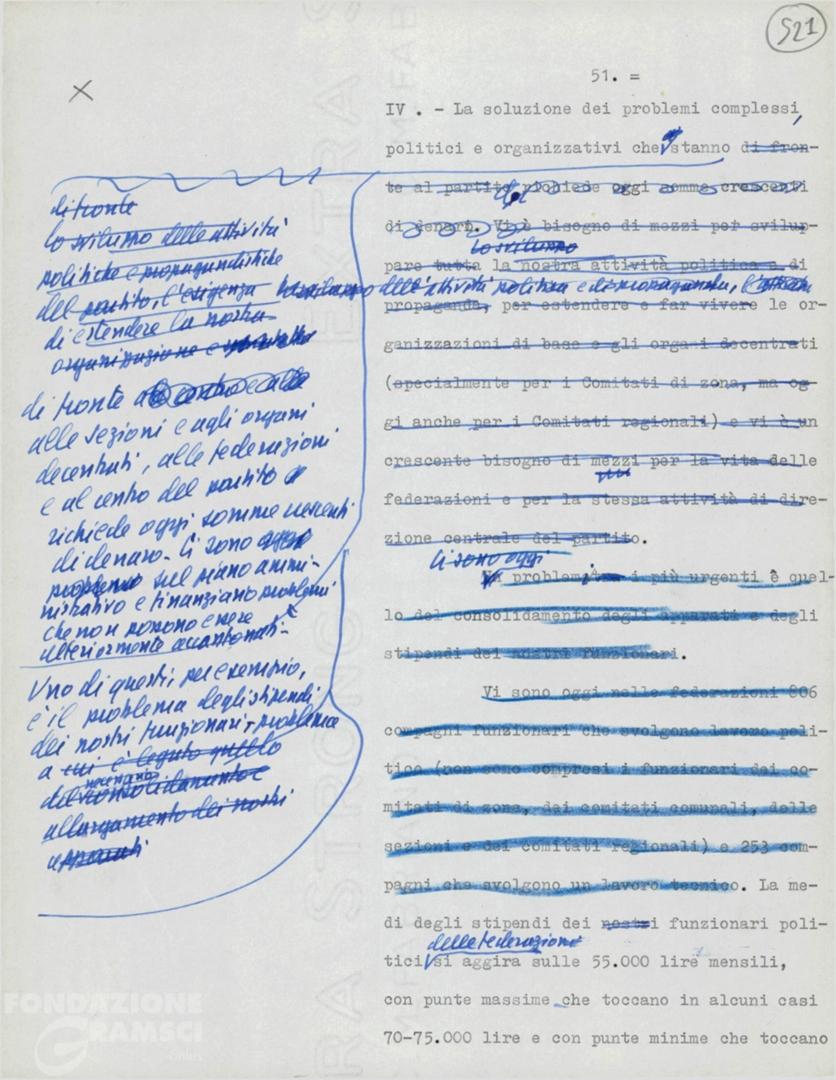 521
51. =
IV . - La soluzione dei problemi complessi,
politici e organizzativi che stanno di fron-
te al partito richiede oggi somme crescenti
di denaro. Vi è bisogno di mezzi per svilup-
lo sviluppo
pare tutta la nostra attività politica e di
lo sviluppo dell'attività politica e di propaganda,
propaganda, per estendere e far vivere le or-
ganizzazioni di base e gli organi decentrati
(specialmente per i Comitati di zona, ma og-
gi anche per i Comitati regionali) e vi è un
crescente bisogno di mezzi per la vita delle
federazioni e per la stessa attività di dire-
zione centrale del partito.
Ci sono oggi
problemi i più urgenti è quel-
lo del consolidamento degli apparati e degli
stipendi dei nostri funzionari.
Vi sono oggi nelle federazioni 806
compagni funzionari che svolgono lavoro poli-
tico (non sono compresi i funzionari dei co-
mitati di zona, dei comitati comunali, delle
sezioni e dei comitati regionali) e 253 com-
pagni che svolgono un lavoro tecnico. La me-
di degli stipendi dei nostri funzionari poli-
delle federazioni
tici si aggira sulle 55.000 lire mensili,
con punte massime che toccano in alcuni casi
70-75.000 lire e con punte minime che toccano
X
di fronte
lo sviluppo delle attività
politiche e propagandistiche
del partito, l'esigenza
di estendere la nostra
organizzazione e
di fronte al centro e alle
alle sezioni e agli organi
decentrati, alle federazioni
e al centro del partito
richiede oggi somme crescenti
di denaro. Ci sono oggi
sul piano ammi-
nistrativo e finanziario problemi
che non possono essere
ulteriormente accantonati.
Uno di questi, per esempio,
è il problema degli stipendi
dei nostri funzionari, problema
a cui è legato quello
del consolidamento e
allargamento dei nostri
apparati
FONDAZIONE
GRAMSCI
onlus
EXTRA STRONG